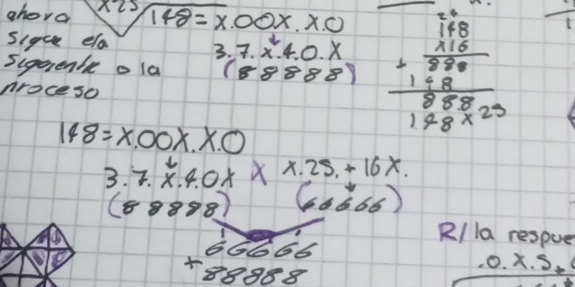 ahora
x25 √148=x.00x.x.0
sigue ela
3.7.x.4.0.x
(88888)
o la
proceso
148
x16
+ 888
148
888
148x25
148=x.00x.x.0
3.7.x.4.0x X x.25.+16x.
(88888) (66666)
66666
+88888
R/ la respue
.0.x.5.